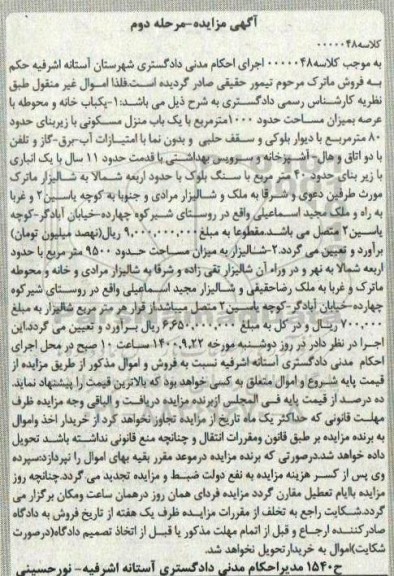 آگهی مزایده-مرحله دوم
کلاسه۰۰۰۰۰۴۸
به موجب کلاسه۰۰۰۰۰۴۸ اجرای احکام مدنی دادگستری شهرستان آستانه اشرفیه حکم
به فروش ماترک مرحوم تیمور حقیقی صادر گردیده است.فلذا اموال غیر منقول طبق
نظریه کارشناس رسمی دادگستری به شرح ذیل می باشد:۱-یکباب خانه و محوطه با
عرصه بمیزان مساحت حدود ۱۰۰۰مترمربع با یک باب منزل مسکونی با زیربنای حدود
۸۰ مترمربع با دیوار بلوکی و سقف حلبی و بدون نما با امتیازات آب-برق-گاز و تلفن
با دو اتاق و هال- آشپزخانه و سرویس بهداشتی با قدمت حدود ۱۱ سال با یک انباری
با زیر بنای حدود ۴۰ متر مربع با سنگ بلوک با حدود اربعه شمالا به شالیزار ماترک
مورث طرفین دعوی و شرقا به ملک و شالیزار مرادی و جنوبا به کوچه یاسین۲ و غربا
به راه و ملک مجید اسماعیلی واقع در روستای شیرکوه چهارده-خیابان آبادگر-کوچه
یاسین۲ متصل می باشد.مقطوعا به مبلغ ۹,۰۰۰,۰۰۰,۰۰۰ ریال(نهصد میلیون تومان)
برآورد و تعیین می گردد.۲-شالیزار به میزان مساحت حدود ۹۵۰۰ متر مربع با حدود
اربعه شمالا به نهر و در وراء آن شالیزار تقی زاده و شرقا به شالیزار مرادی و خانه و محوطه
ماترک و غربا به ملک رضاحقیقی و شالیزار مجید اسماعیلی واقع در روستای شیرکوه
چهارده-خیابان آبادگر-کوچه یاسین۲ متصل میباشداز قرار هر متر مربع شالیزار به مبلغ
۷۰۰,۰۰۰ ریال و در کل به مبلغ ۶,۶۵۰,۰۰۰,۰۰۰ ریال برآورد و تعیین می گردد.این
اجرا در نظر دارد در روز دوشنبه مورخه ۱۴۰۰,۹,۲۲ ساعت ۱۰ صبح در محل اجرای
احکام مدنی دادگستری آستانه اشرفیه نسبت به فروش و اموال مذکور از طریق مزایده از
قیمت پایه شروع و اموال متعلق به کسی خواهد بود که بالاترین قیمت را پیشنهاد نماید.
ده درصد از قیمت پایه فی المجلس ازبرنده مزایده دریافت و الباقی وجه مزایده ظرف
مهلت قانونی که حداکثر یک ماه تاریخ از مزایده تجاوز نخواهد کرد از خریدار اخذ واموال
به برنده مزایده بر طبق قانون ومقررات انتقال و چنانچه منع قانونی نداشته باشد تحویل
داده خواهد شد.درصورتی که برنده مزایده درموعد مقرر بقیه بهای اموال را نپردازد:سپرده
وی پس از کسر هزینه مزایده به نفع دولت ضبط و مزایده تجدید می گردد.چنانچه روز
مزایده باایام تعطیل مقارن گردد مزایده فردای همان روز درهمان ساعت ومکان برگزار می
گردد.شکایت راجع به تخلف از مقررات مزایده ظرف یک هفته از تاریخ فروش به دادگاه
صادرکننده ارجاع و قبل از اتمام مهلت مذکور یا قبل از اتخاذ تصمیم دادگاه(درصورت
شکایت)اموال به خریدارتحویل نخواهد شد.
ح۱۵۴۰ مدیراحکام مدنی دادگستری آستانه اشرفیه- نورحسینی